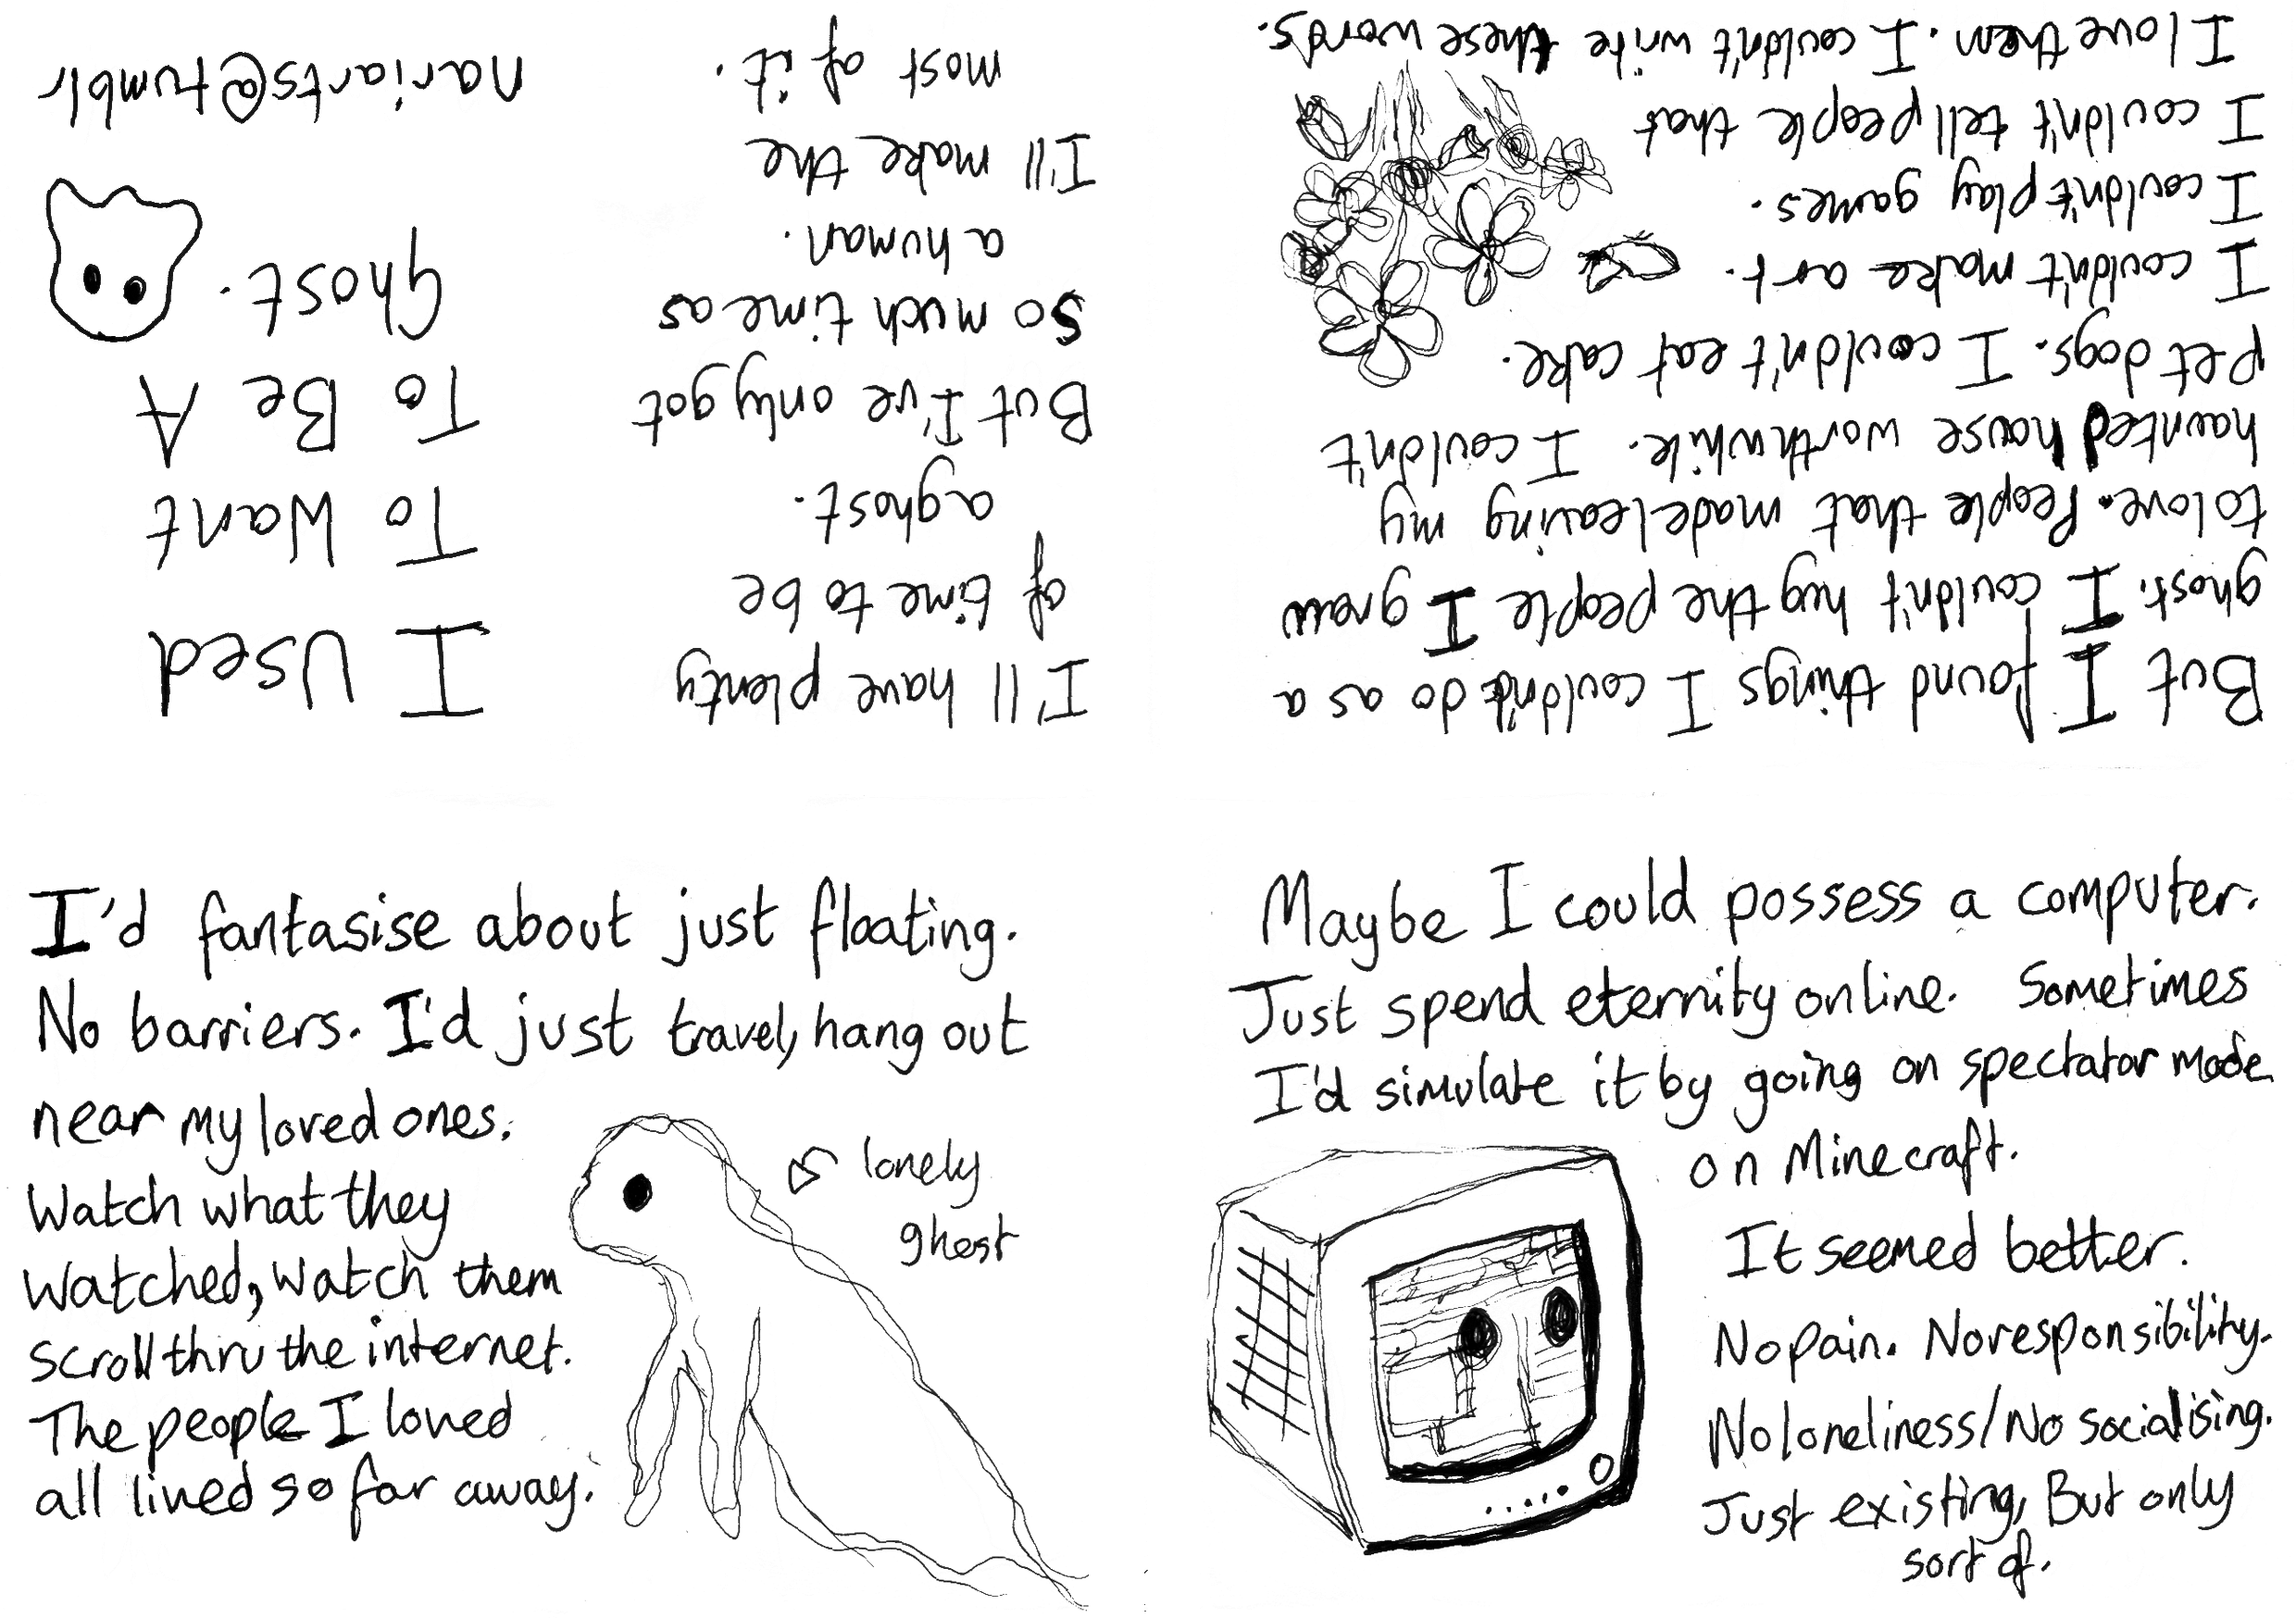 I Used
To Want
To Be A
Ghost.
nariarts@tumblr
I'd fantasise about just floating.
No barriers. I'd just travel, hang out
near my loved ones.
Watch what they
watched, watch them
scroll thru the internet.
The people I loved
all lived so far away.
lonely
ghost
Maybe I could possess a computer.
Just spend eternity online. Sometimes
I'd simulate it by going on spectator mode
on Minecraft.
It seemed better.
No pain. No responsibility.
No loneliness/No socialising.
Just existing, But only
sort of.
But I found things I couldn't do as a
ghost. I couldn't hug the people I grew
to love. People that made leaving my
haunted house worthwhile. I couldn't
pet dogs. I couldn't eat cake.
I couldn't make art.
I couldn't play games.
I couldn't tell people that
I love them. I couldn't write these words.
I'll have plenty
of time to be
a ghost.
But I've only got
so much time as
a human.
I'll make the
most of it.